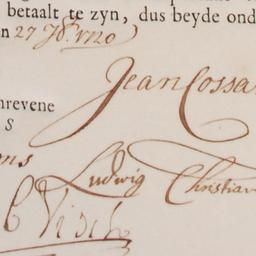 betaalt te zyn, dus beyde ond
n 27
Jean Cossa
hrevene
s
ons
Ludwig Christian
C Visch